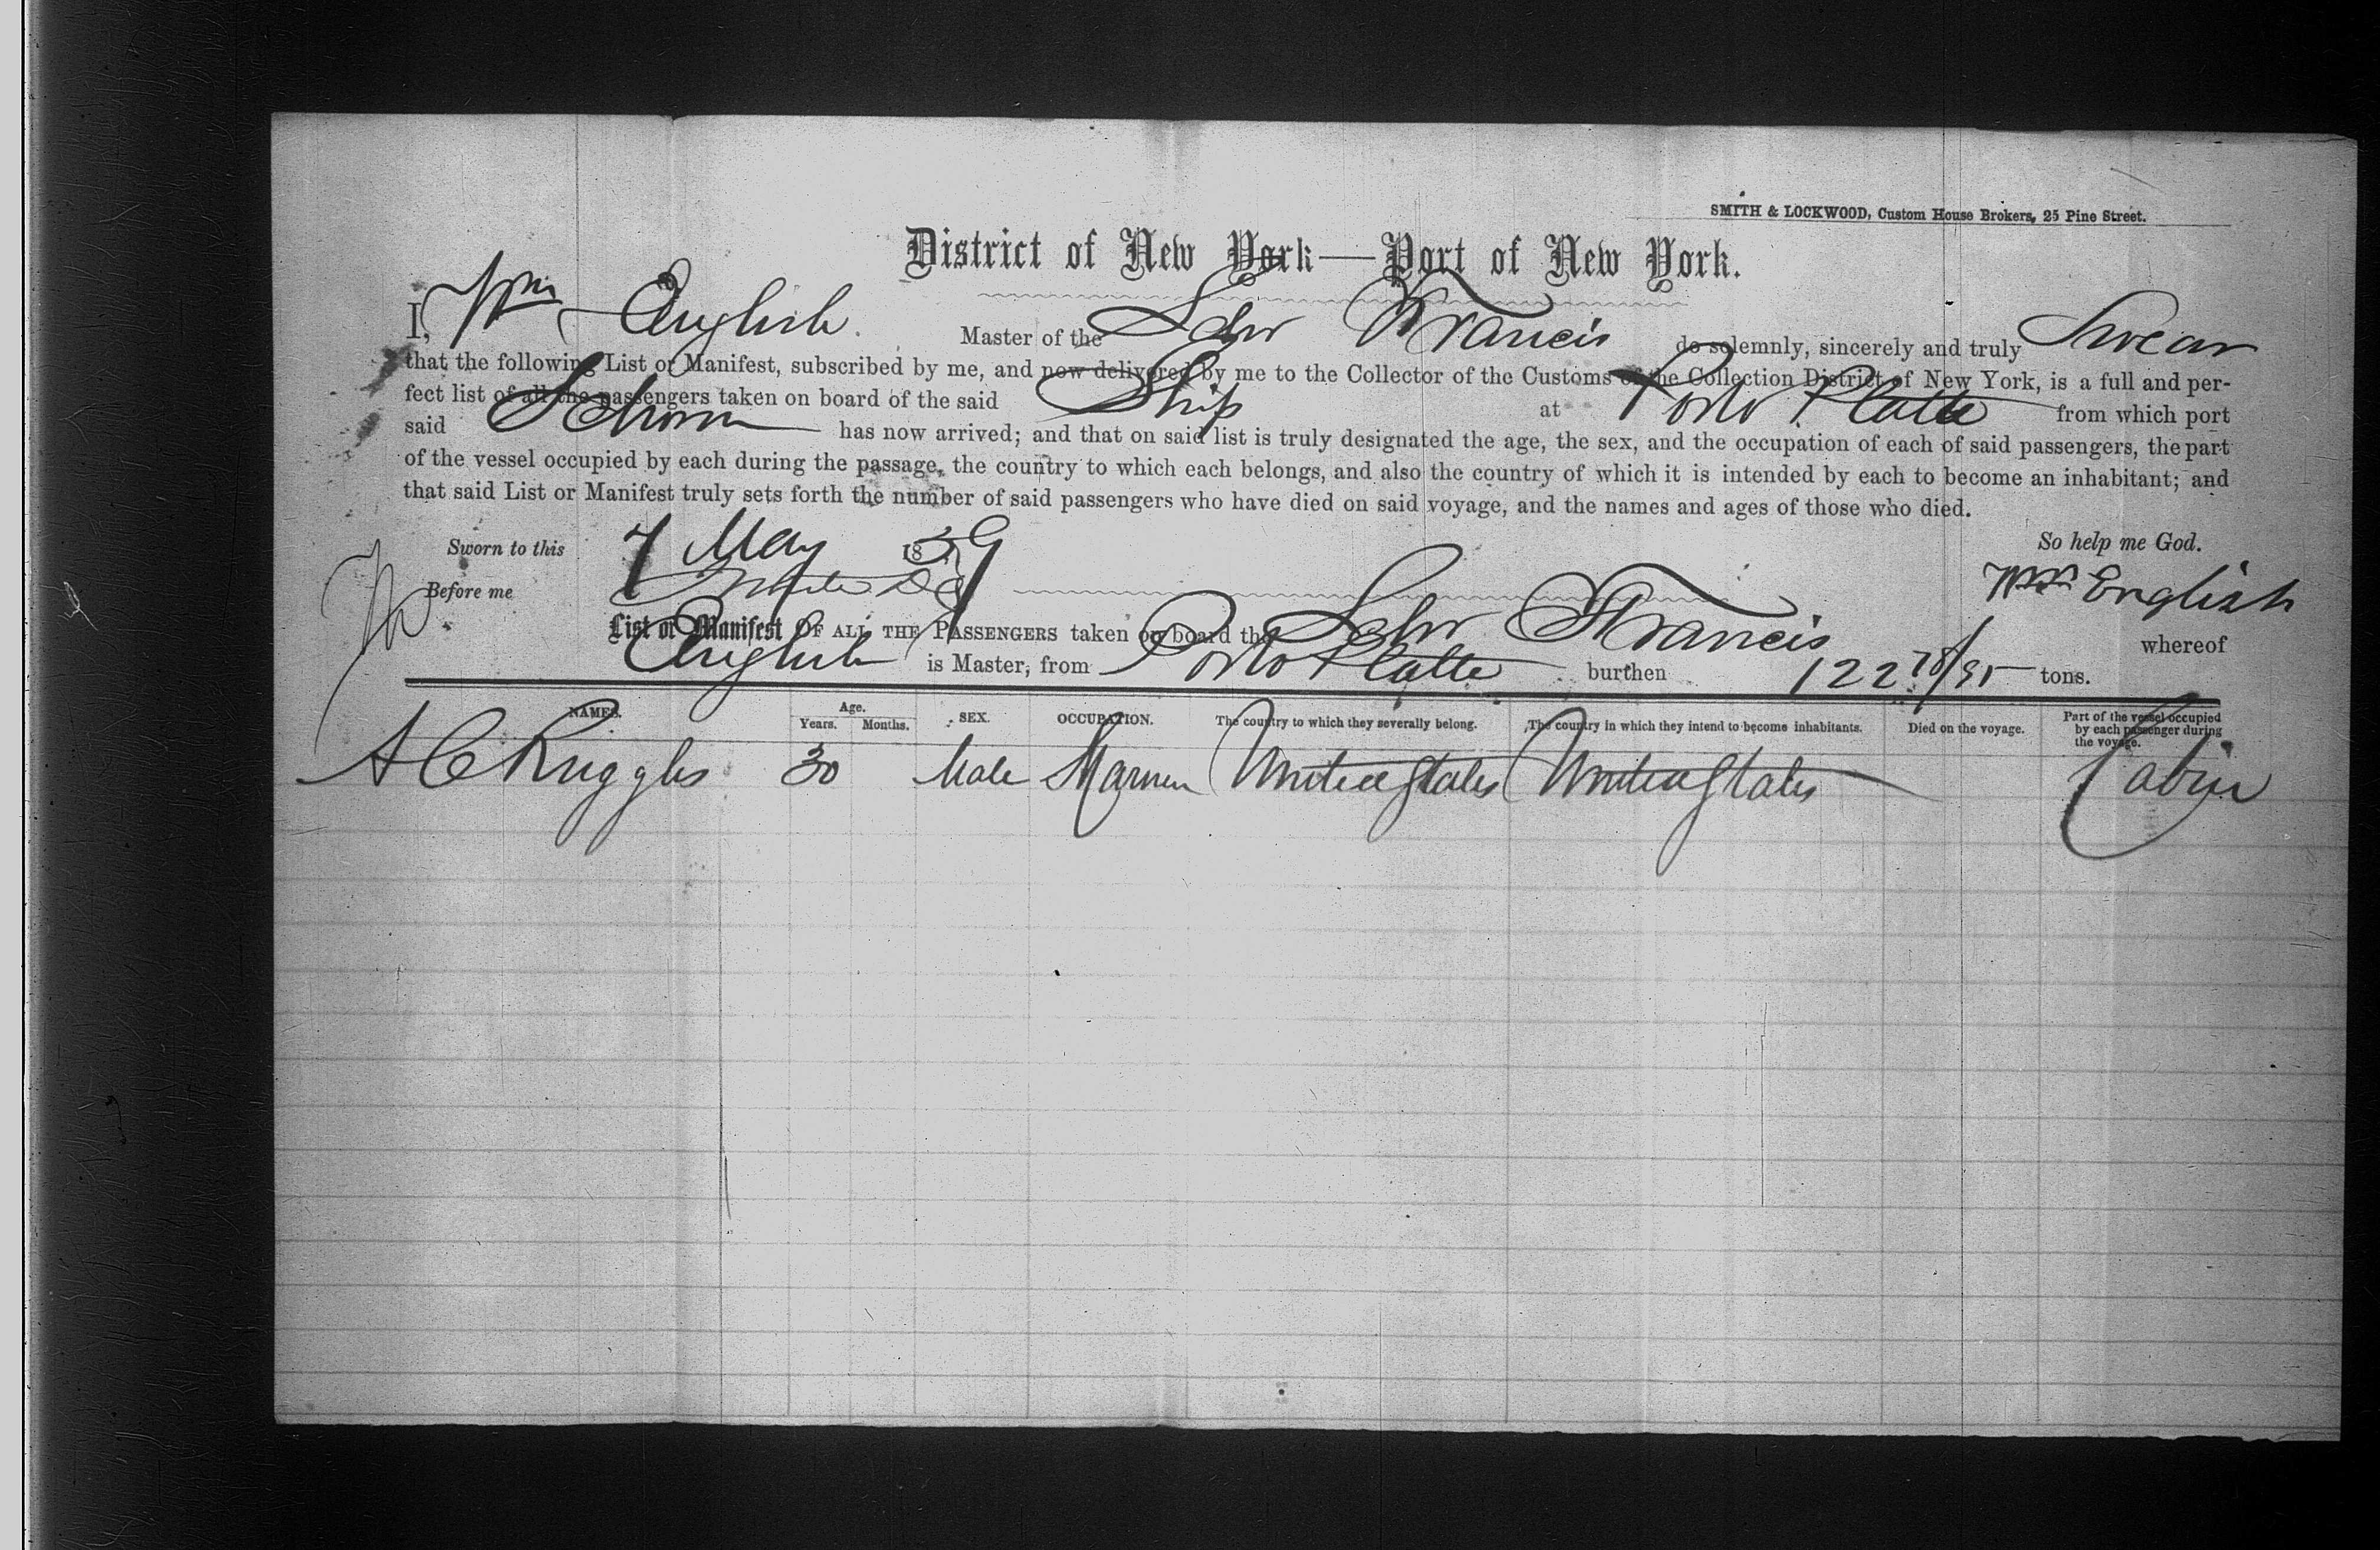 SMITH & LOCKWOOD, Custom House Brokers, 25 Pine Street.
District of New York—Port of New York.
I, Wm English Master of the Schr Francis do solemnly, sincerely and truly Swear
that the following List or Manifest, subscribed by me, and now delivered by me to the Collector of the Customs of the Collection District of New York, is a full and per-
fect list of all the passengers taken on board of the said Ship at Porto Platte from which port
said Schorn has now arrived; and that on said list is truly designated the age, the sex, and the occupation of each of said passengers, the part
of the vessel occupied by each during the passage, the country to which each belongs, and also the country of which it is intended by each to become an inhabitant; and
that said List or Manifest truly sets forth the number of said passengers who have died on said voyage, and the names and ages of those who died.
Sworn to this 7 May 1859 So help me God.
Before me Wm English
List or Manifest OF ALL THE PASSENGERS taken on board the Schr Francis whereof
English is Master, from Porto Platte burthen 122 78/95 tons.
NAMES. Age. Years. Months. SEX. OCCUPATION. The country to which they severally belong. The country in which they intend to become inhabitants. Died on the voyage. Part of the vessel occupied by each passenger during the voyage.
A C Ruggles 30 Male Mariner United States United States Cabin